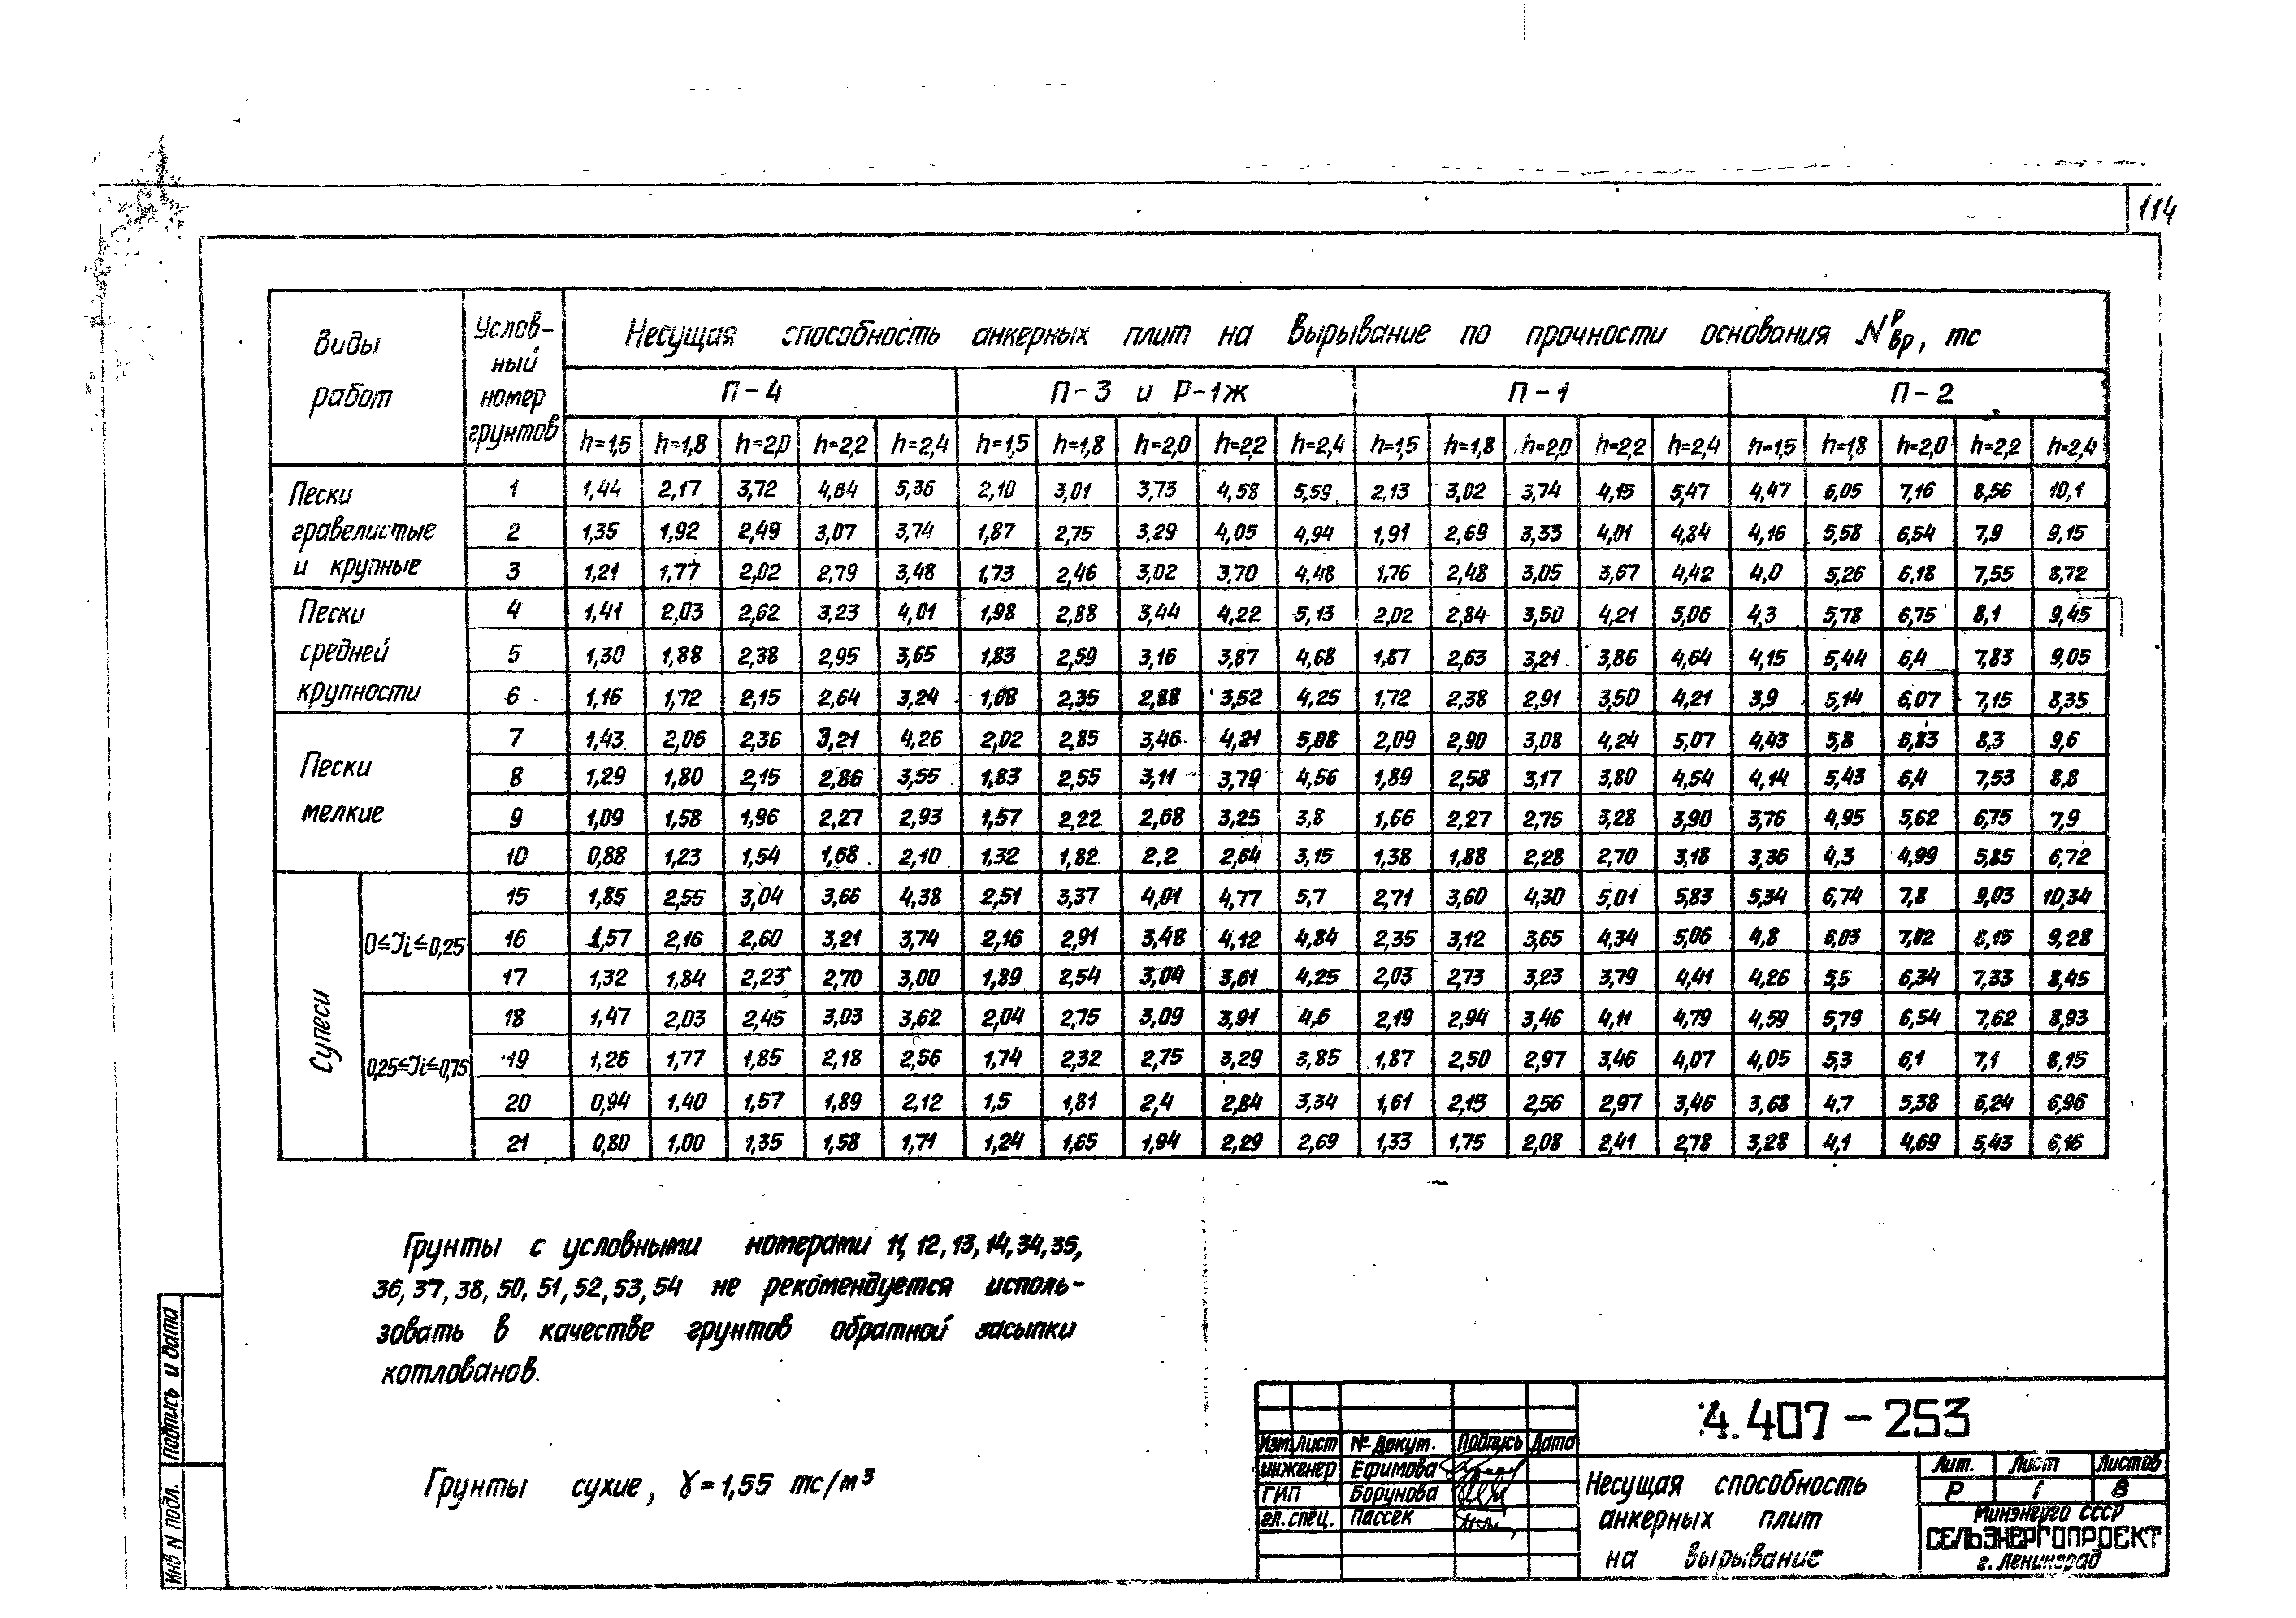 114
Виды работ
Услов-ный номер грунтов
Несущая способность анкерных плит на вырывание по прочности основания N^р_вр, тс
П-4 П-3 и Р-1ж П-1 П-2
h=1,5 h=1,8 h=2,0 h=2,2 h=2,4 h=1,5 h=1,8 h=2,0 h=2,2 h=2,4 h=1,5 h=1,8 h=2,0 h=2,2 h=2,4 h=1,5 h=1,8 h=2,0 h=2,2 h=2,4
Пески гравелистые и крупные
1 1,44 2,17 3,72 4,64 5,36 2,10 3,01 3,73 4,58 5,59 2,13 3,02 3,74 4,15 5,47 4,47 6,05 7,16 8,56 10,1
2 1,35 1,92 2,49 3,07 3,74 1,87 2,75 3,29 4,05 4,94 1,91 2,69 3,33 4,01 4,84 4,16 5,58 6,54 7,9 9,15
3 1,21 1,77 2,02 2,79 3,48 1,73 2,46 3,02 3,70 4,48 1,76 2,48 3,05 3,67 4,42 4,0 5,26 6,18 7,55 8,72
Пески средней крупности
4 1,41 2,03 2,62 3,23 4,01 1,98 2,88 3,44 4,22 5,13 2,02 2,84 3,50 4,21 5,06 4,3 5,78 6,75 8,1 9,45
5 1,30 1,88 2,38 2,95 3,65 1,83 2,59 3,16 3,87 4,68 1,87 2,63 3,21 3,86 4,64 4,15 5,44 6,4 7,83 9,05
6 1,16 1,72 2,15 2,64 3,24 1,68 2,35 2,88 3,52 4,25 1,72 2,38 2,91 3,50 4,21 3,9 5,14 6,07 7,15 8,35
Пески мелкие
7 1,43 2,06 2,36 3,21 4,26 2,02 2,85 3,46 4,21 5,08 2,09 2,90 3,08 4,24 5,07 4,43 5,8 6,83 8,3 9,6
8 1,29 1,80 2,15 2,86 3,55 1,83 2,55 3,11 3,79 4,56 1,89 2,58 3,17 3,80 4,54 4,14 5,43 6,4 7,53 8,8
9 1,09 1,58 1,96 2,27 2,93 1,57 2,22 2,68 3,25 3,8 1,66 2,27 2,75 3,28 3,90 3,76 4,95 5,62 6,75 7,9
10 0,88 1,23 1,54 1,68 2,10 1,32 1,82 2,2 2,64 3,15 1,38 1,88 2,28 2,70 3,18 3,36 4,3 4,99 5,85 6,72
Супеси
0≤Ji≤0,25
15 1,85 2,55 3,04 3,66 4,38 2,51 3,37 4,01 4,77 5,7 2,71 3,60 4,30 5,01 5,83 5,34 6,74 7,8 9,03 10,34
16 1,57 2,16 2,60 3,21 3,74 2,16 2,91 3,48 4,12 4,84 2,35 3,12 3,65 4,34 5,06 4,8 6,03 7,02 8,15 9,28
17 1,32 1,84 2,23 2,70 3,00 1,89 2,54 3,04 3,61 4,25 2,03 273 3,23 3,79 4,41 4,26 5,5 6,34 7,33 8,45
0,25≤Ji≤0,75
18 1,47 2,03 2,45 3,03 3,62 2,04 2,75 3,09 3,91 4,6 2,19 2,94 3,46 4,11 4,79 4,59 5,79 6,54 7,62 8,93
19 1,26 1,77 1,85 2,18 2,56 1,74 2,32 2,75 3,29 3,85 1,87 2,50 2,97 3,46 4,07 4,05 5,3 6,1 7,1 8,15
20 0,94 1,40 1,57 1,89 2,12 1,5 1,81 2,4 2,84 3,34 1,61 2,15 2,56 2,97 3,46 3,68 4,7 5,38 6,24 6,96
21 0,80 1,00 1,35 1,58 1,71 1,24 1,65 1,94 2,29 2,69 1,33 1,75 2,08 2,41 2,78 3,28 4,1 4,69 5,43 6,16
Грунты с условными номерати 11, 12, 13, 14, 34, 35,
36, 37, 38, 50, 51, 52, 53, 54 не рекомендуется исполь-
зовать в качестве грунтов обратной засыпки
котлованов.
Грунты сухие, γ=1,55 тс/м³
Подпись и дата
Инв N подл.
4.407-253
Изм. Лист № Докум. Подпись Дата
инженер Ефимова
ГИП Борунова
гл. спец. Пассек
Несущая способность
анкерных плит
на вырывание
Лит. Лист Листов
Р 1 8
Минэнерго СССР
СЕЛЬЭНЕРГОПРОЕКТ
г. Ленинград